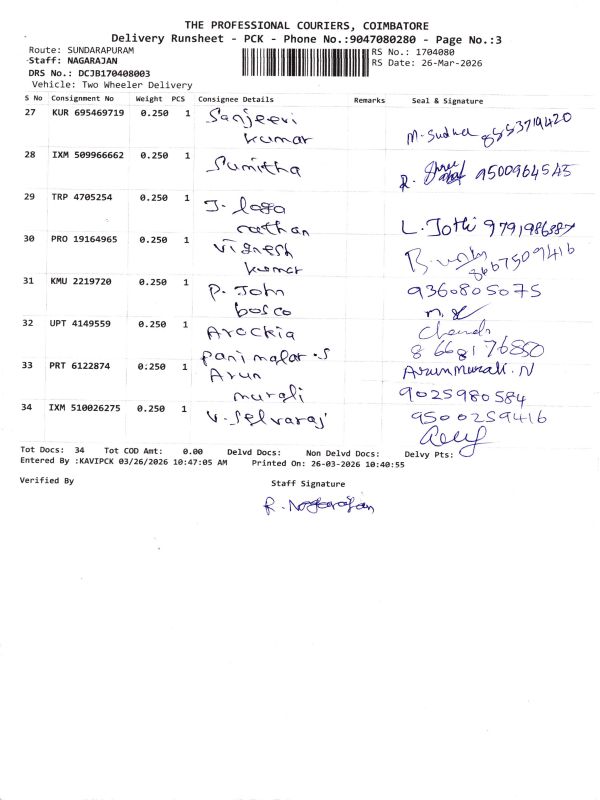 THE PROFESSIONAL COURIERS, COIMBATORE
Delivery Runsheet - PCK - Phone No.:9047080280 - Page No.:3
Route: SUNDARAPURAM RS No.: 1704080
Staff: NAGARAJAN RS Date: 26-Mar-2026
DRS No.: DCJB170408003
Vehicle: Two Wheeler Delivery
S No Consignment No Weight PCS Consignee Details Remarks Seal & Signature
27 KUR 695469719 0.250 1 Sanjeevi
kumar M. Sudha 8553719420
28 IXM 509966662 0.250 1 Sumitha
R. 9500964545
29 TRP 4705254 0.250 1 J. laga
nathan L. Jothi 9791986387
30 PRO 19164965 0.250 1 Vignesh
kumar 8667509416
31 KMU 2219720 0.250 1 P. John 9360805075
bosco
32 UPT 4149559 0.250 1 Arockia
panimalar.S 8668176850
33 PRT 6122874 0.250 1 Arun Arunmurali.N
murali 9025980584
34 IXM 510026275 0.250 1 V. Selvaraj 9500259416
Tot Docs: 34 Tot COD Amt: 0.00 Delvd Docs: Non Delvd Docs: Delvy Pts:
Entered By :KAVIPCK 03/26/2026 10:47:05 AM Printed On: 26-03-2026 10:40:55
Verified By Staff Signature
R. Nagarajan